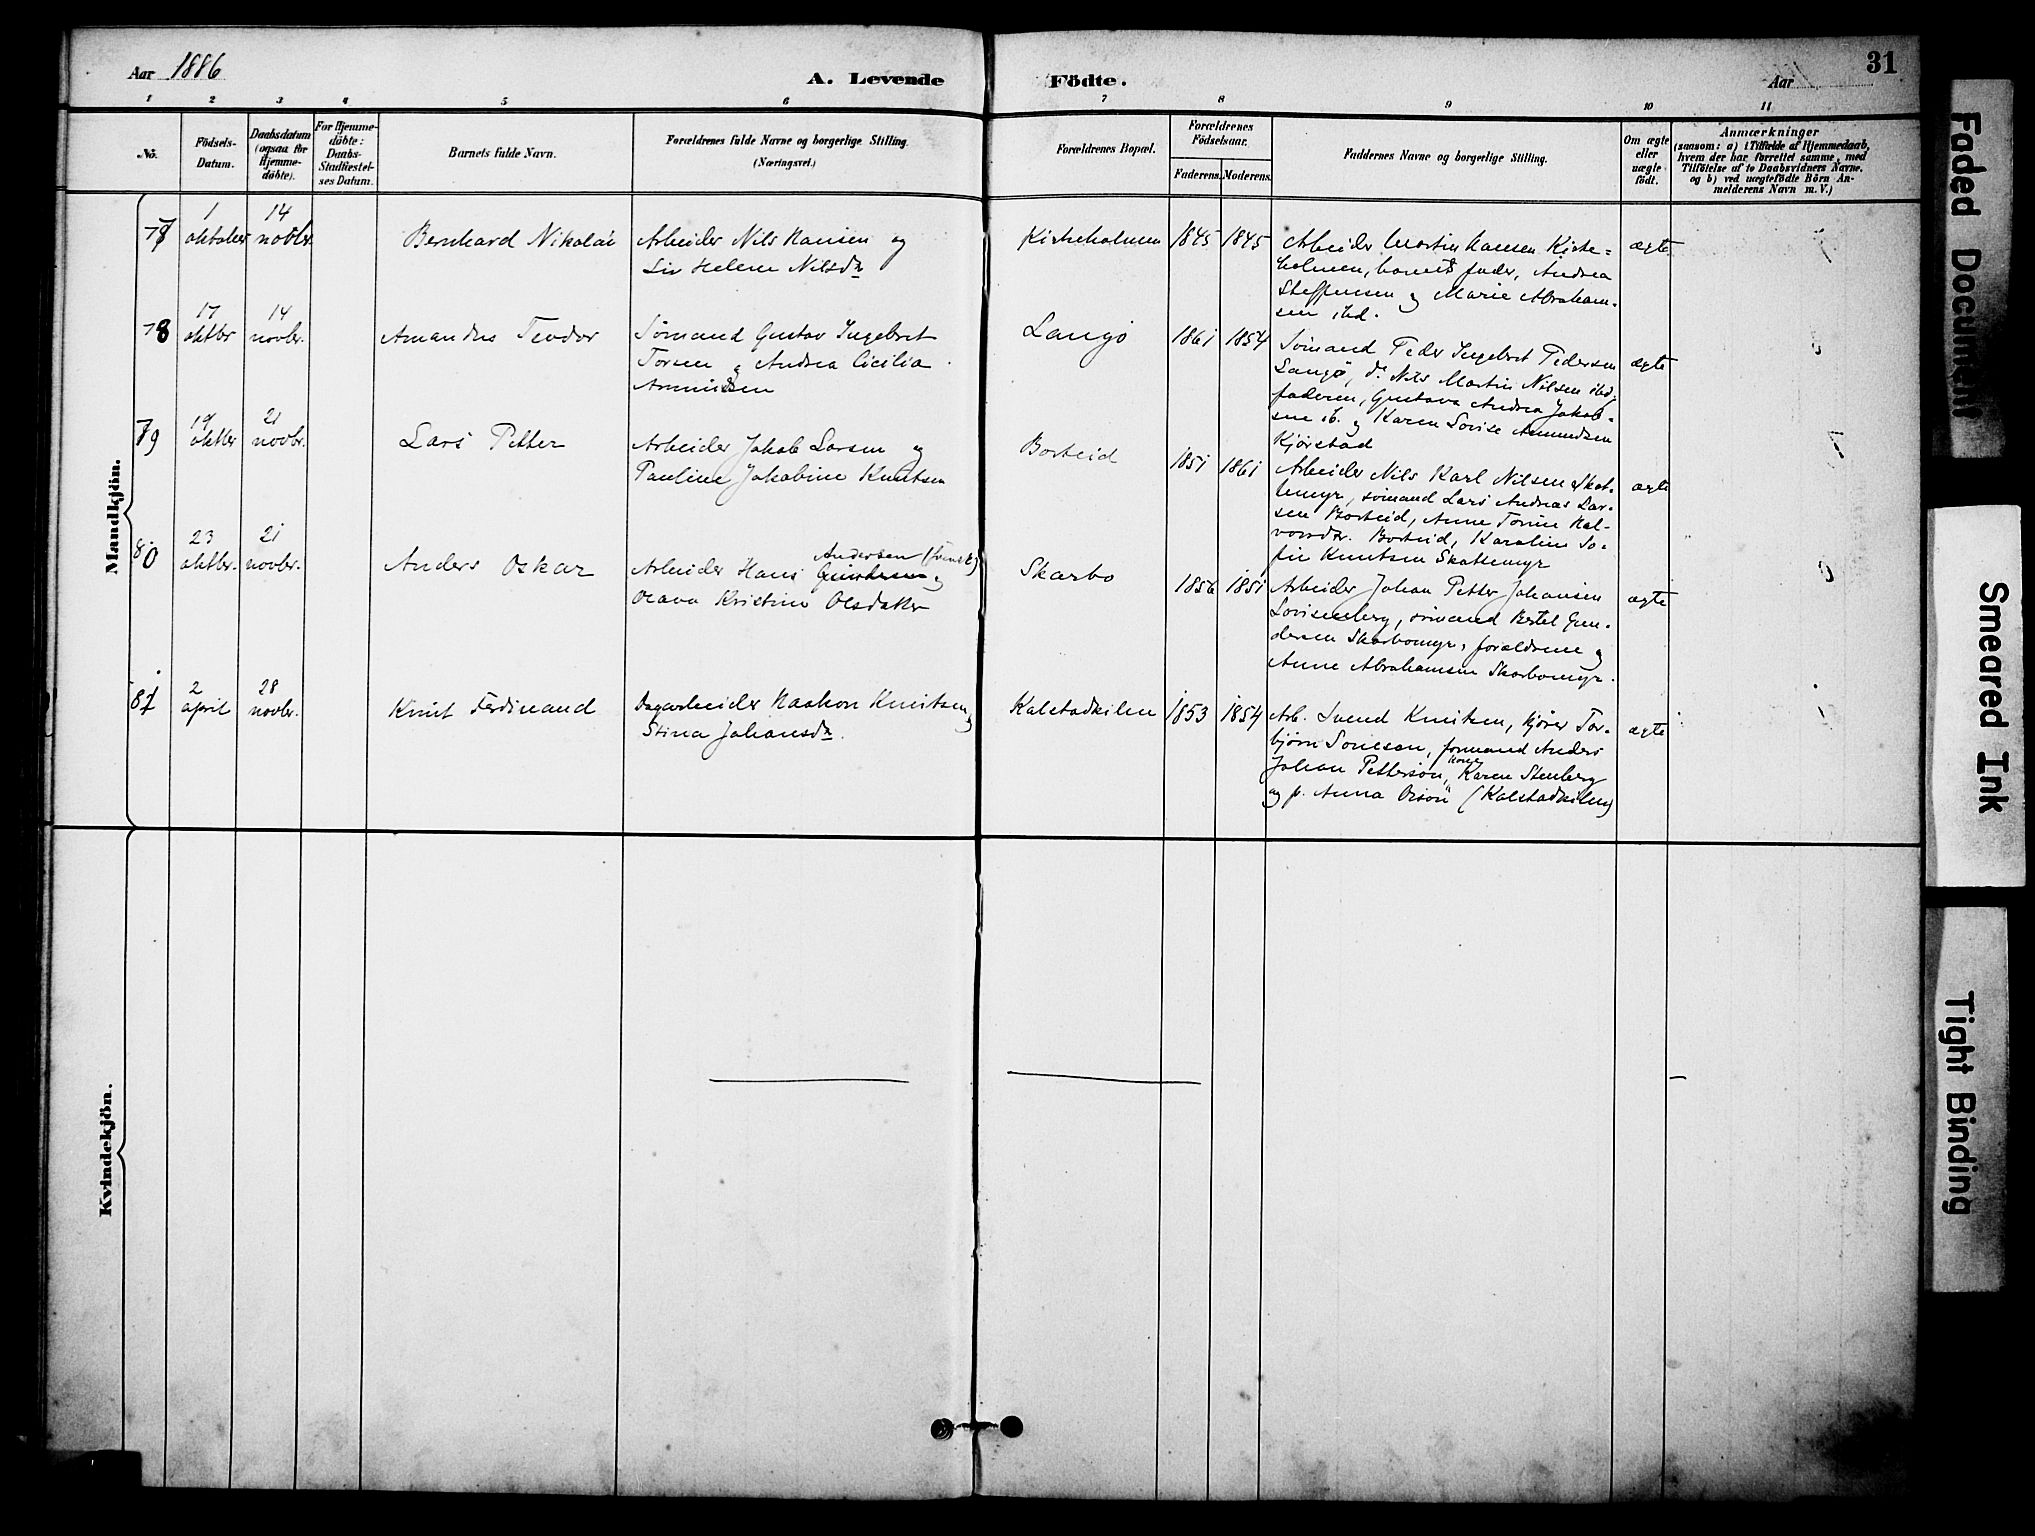 Aar 1886
A. Levende Födte.
Aar
31
1 2 3 4 5 6 7 8 9 10 11
No.
Födsels-
Datum.
Daabsdatum
(ogsaa for
Hjemme-
döbte).
For Hjemme-
döbte:
Daabs-
Stadfæstel-
ses Datum.
Barnets fulde Navn.
Forældrenes fulde Navne og borgerlige Stilling.
(Næringsvei.)
Forældrenes Bopæl.
Forældrenes
Födselsaar.
Faderens. Moderens.
Faddernes Navne og borgerlige Stilling.
Om ægte
eller
uægte
födt.
Anmærkninger
(saasom: a) i Tilfælde af Hjemmedaab,
hvem der har forrettet samme, med
Tilföielse af to Daabsvidners Navne.
og b) ved uægtefödte Börn An-
melderens Navn m. V.)
Mandkjön.
77
1
oktober
14
novbr.
Bernhard Nikolai
Arbeider Nils Hansen og
Liv Helene Nilsdr
Kirkeholmen
1845 1845
Arbeider Martin Hansen Kirke-
holmen, barnets fader, Andrea
Steffensen og Marie Abraham-
sen ibd.
ægte
78
17
oktbr
14
novbr.
Amandus Teodor
Sømand Gustav Ingebret
Torsen og Andrea Cicilia
Amundsen
Langø
1861 1854
Sømand Peder Ingebret Pedersen
Langø, do Nils Martin Nilsen ibd,
faderen, Gustava Andrea Jakob-
sen ib. og Karen Lovise Amundsen
Kjørstad
ægte
79
19
oktbr
21
novbr.
Lars Petter
Arbeider Jakob Larsen og
Pauline Jakobine Knutsen
Borteid
1851 1861
Arbeider Nils Karl Nilsen Skat-
temyr, sømand Lars Andreas Lar-
sen Borteid, Anne Tomine Hal-
vorsdr. Borteid, Karoline So-
fie Knutsen Skattemyr
ægte
80
23
oktbr.
21
novbr.
Anders Oskar
Andersen (svensk)
Arbeider Hans Gundersen og
Olava Kristine Olsdatter
Skarbo
1856 1851
Arbeider Johan Petter Johansen
Lovisenberg, sømand Bertel Gun-
dersen Skarbomyr, forældrene og
Anne Abrahamsen Skarbomyr.
ægte
81
2
april
28
novbr.
Knut Ferdinand
Dagarbeider Haakon Knutsen og
Stina Johansdr.
Kalstadkilen
1853 1854
Arb. Svend Knutsen, kjører Tor-
bjørn Sonesøn, formand Anders
Johan Pettersøn, kone Karen Stenberg
og p. Anna Olsøn (Kalstadkilen)
ægte
Kvindekjön.
Faded Document
Smeared Ink
Tight Binding